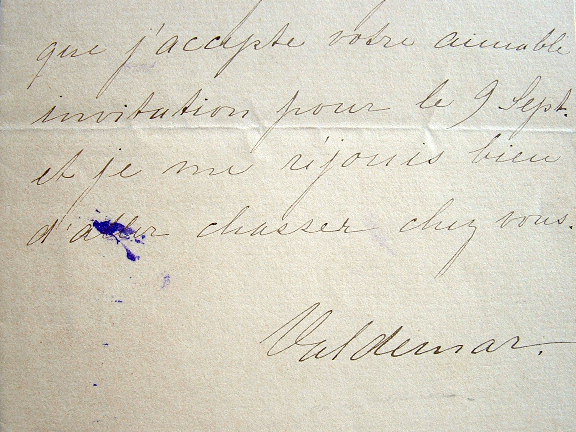 que j'accepte votre aimable
invitation pour le 9 Sept.
et je me réjouis bien
d'aller chasser chez vous.
Valdemar.